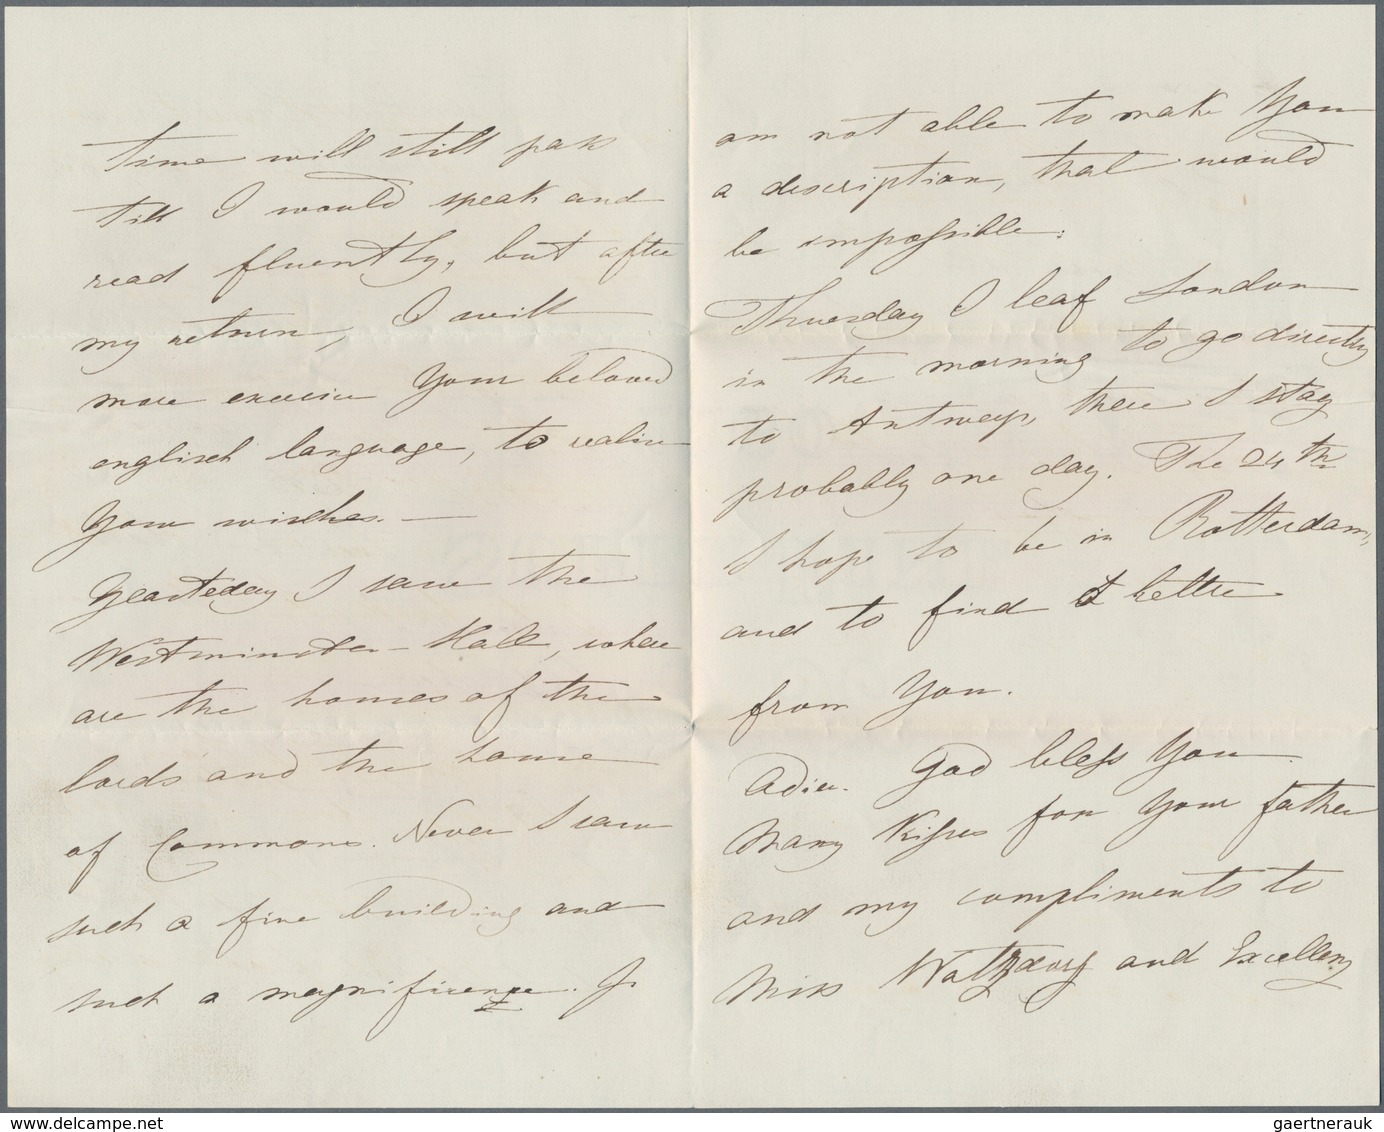 time will still pass
till I would speak and
read fluently, but after
my return, I will
more exercise Your beloved
englisch language, to realise
Your wishes. —
Yearsteday I saw the
Westminster-Hall, where
are the houses of the
lords and the house
of Commons. Never I saw
such a fine building and
such a magnificence. I
am not able to make You
a description, that would
be impossible.
Thuersday I leaf London
in the morning to go directly
to Antwerp, there I stay
probably one day. The 24th
I hope to be in Rotterdam,
and to find a lettre
from You.
Adieu. God bless You.
Many Kisses for Your father
and my compliments to
Miss and Excellenz
delcampe.net
gaertnerauk